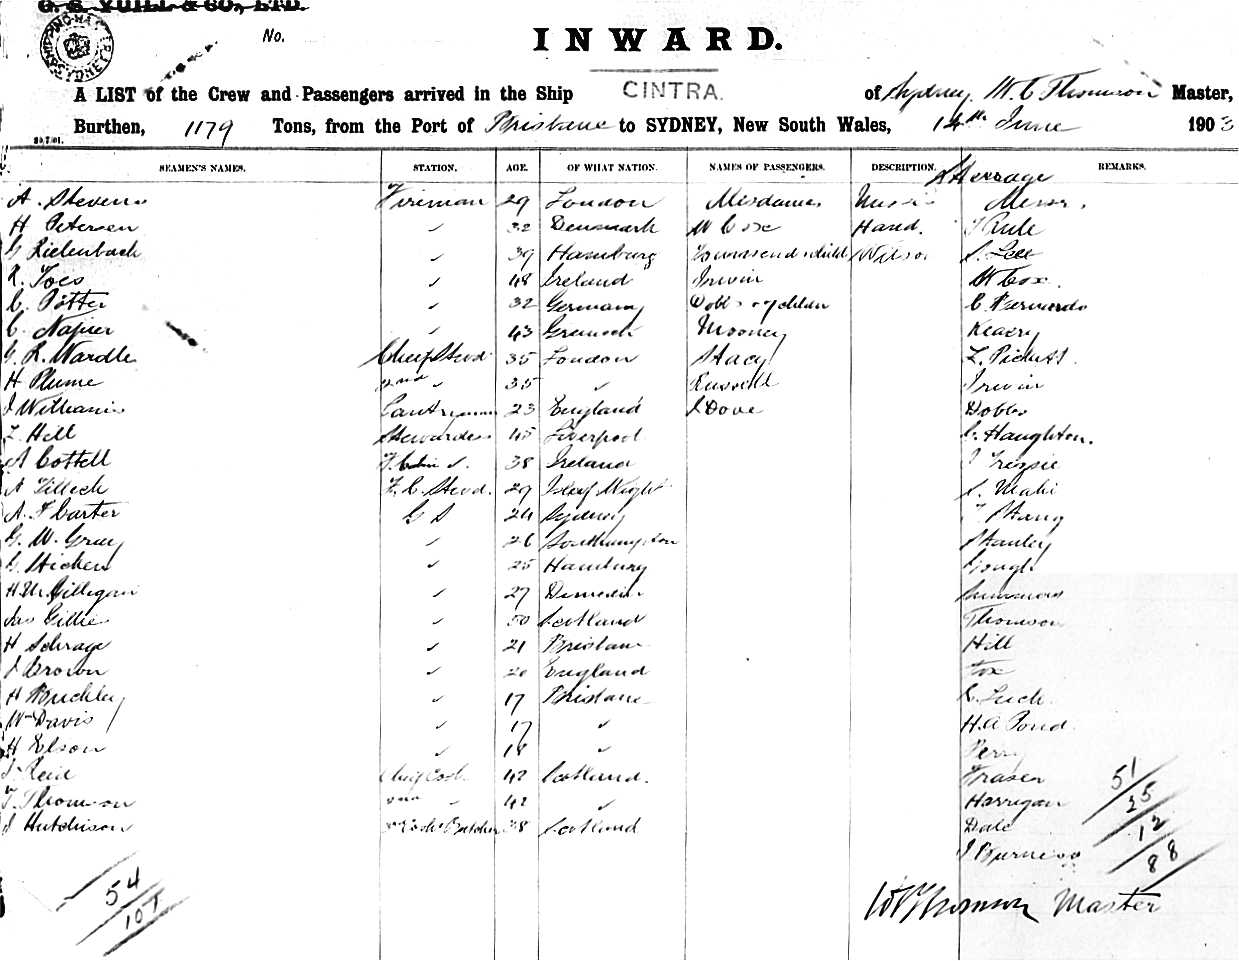 G. S. YUILL & CO., LTD.
No.
INWARD.
A LIST of the Crew and Passengers arrived in the Ship CINTRA. of Sydney, W. C. Thomson Master,
Burthen, 1179 Tons, from the Port of Brisbane to SYDNEY, New South Wales, 14th June 1903
SEAMEN'S NAMES. STATION. AGE. OF WHAT NATION. NAMES OF PASSENGERS. DESCRIPTION. REMARKS.
Steerage
A. Stevens Fireman 29 London Mesdames Misses Messrs.
H Petersen " 32 Denmark W Cox Hand. Rule
G Rielenbach " 39 Hamburg Townsend & child Wilson S. Lee
R. " 48 Ireland Irwin W Cox.
C. Potter " 32 Germany Dobbs & children C
C. Napier " 43 Greenock Mooney Keary
G. R. Wardle Chief Stwd 35 London Stacy Pickett
H Plume 2nd " 35 " Russell Irwin
J Williams Pantryman 23 England J Dove Dobbs
Hill Stewardess 45 Liverpool C. Haughton.
A Cottell 38 Ireland
A Tilleck F. C. Stwd. 29 Isle of Wight S. Mahi
A. F Carter G S 24 Sydney
G. W. Gray " 26 Southampton Stanley
G. Hicken " 25 Hamburg Gough
H. M. Gilligan " 27 Dunedin Summers
Jas Gillies " 50 Scotland Thomson
H Schrage " 21 Brisbane Hill
J Brown " 20 England Fox
H Buckley " 17 Brisbane
Wm Davis " 17 " H. A Pond.
H Elson " 18 " Perry
J. Reid Chief Cook 42 Scotland. Fraser
T. Thomson 2nd " 42 " Harrigan
J Hutchison Butcher 38 Scotland Dale
J
51
25
12
88
54
107
W C Thomson Master